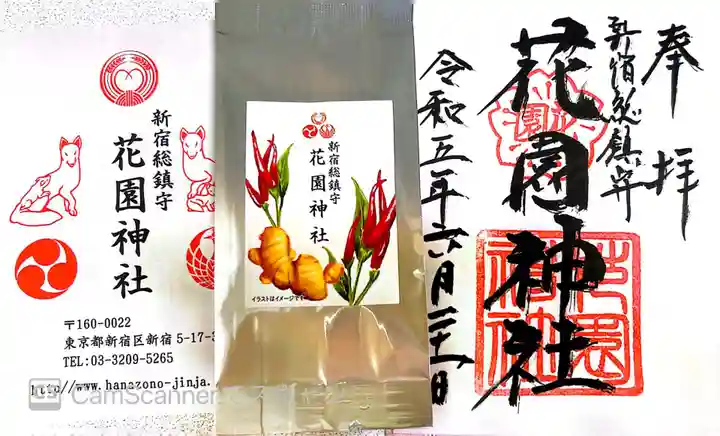 新宿総鎮守
花園神社
〒160-0022
東京都新宿区新宿5-17-3
TEL:03-3209-5265
http://www.hanazono-jinja.
CamScanner
新宿総鎮守
花園神社
イラストはイメージです
奉拝
新宿総鎮守
花園神社
令和五年六月二十八日